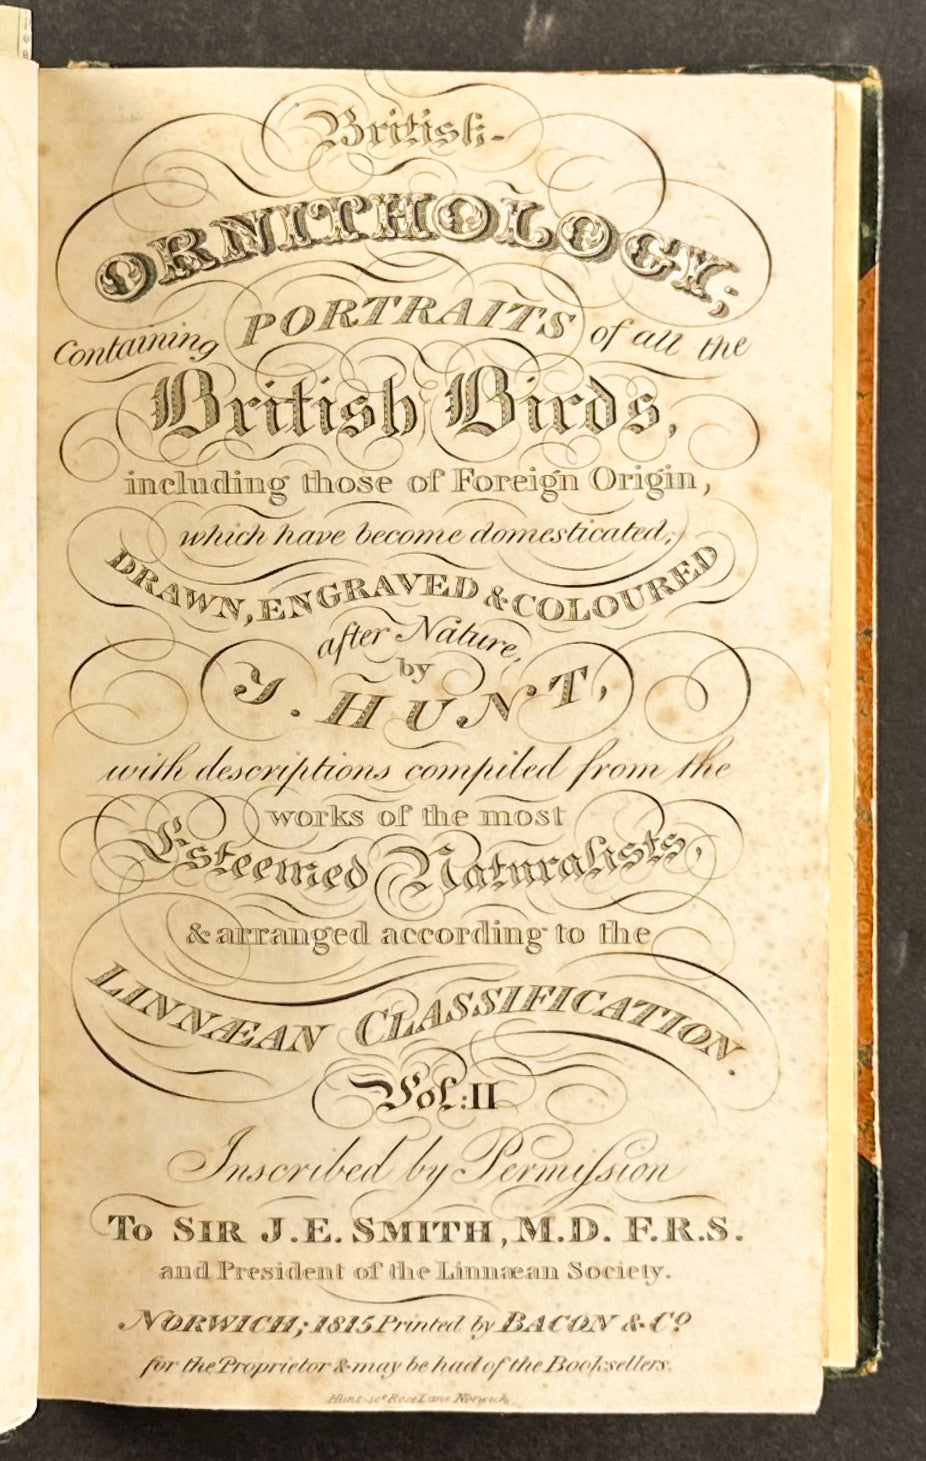 British
ORNITHOLOGY;
Containing PORTRAITS of all the
British Birds,
including those of Foreign Origin,
which have become domesticated;
DRAWN, ENGRAVED & COLOURED
after Nature,
by
J. HUNT,
with descriptions compiled from the
works of the most
Esteemed Naturalists,
& arranged according to the
LINNÆAN CLASSIFICATION.
Vol: II
Inscribed by Permiſsion
To SIR J.E. SMITH, M.D. F.R.S.
and President of the Linnæan Society.
NORWICH; 1815 Printed by BACON & Co
for the Proprietor & may be had of the Booksellers.
Hunt sct Rose Lane Norwich